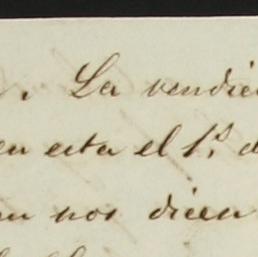 . La vendie
en esta el 1.º d
nos dicen